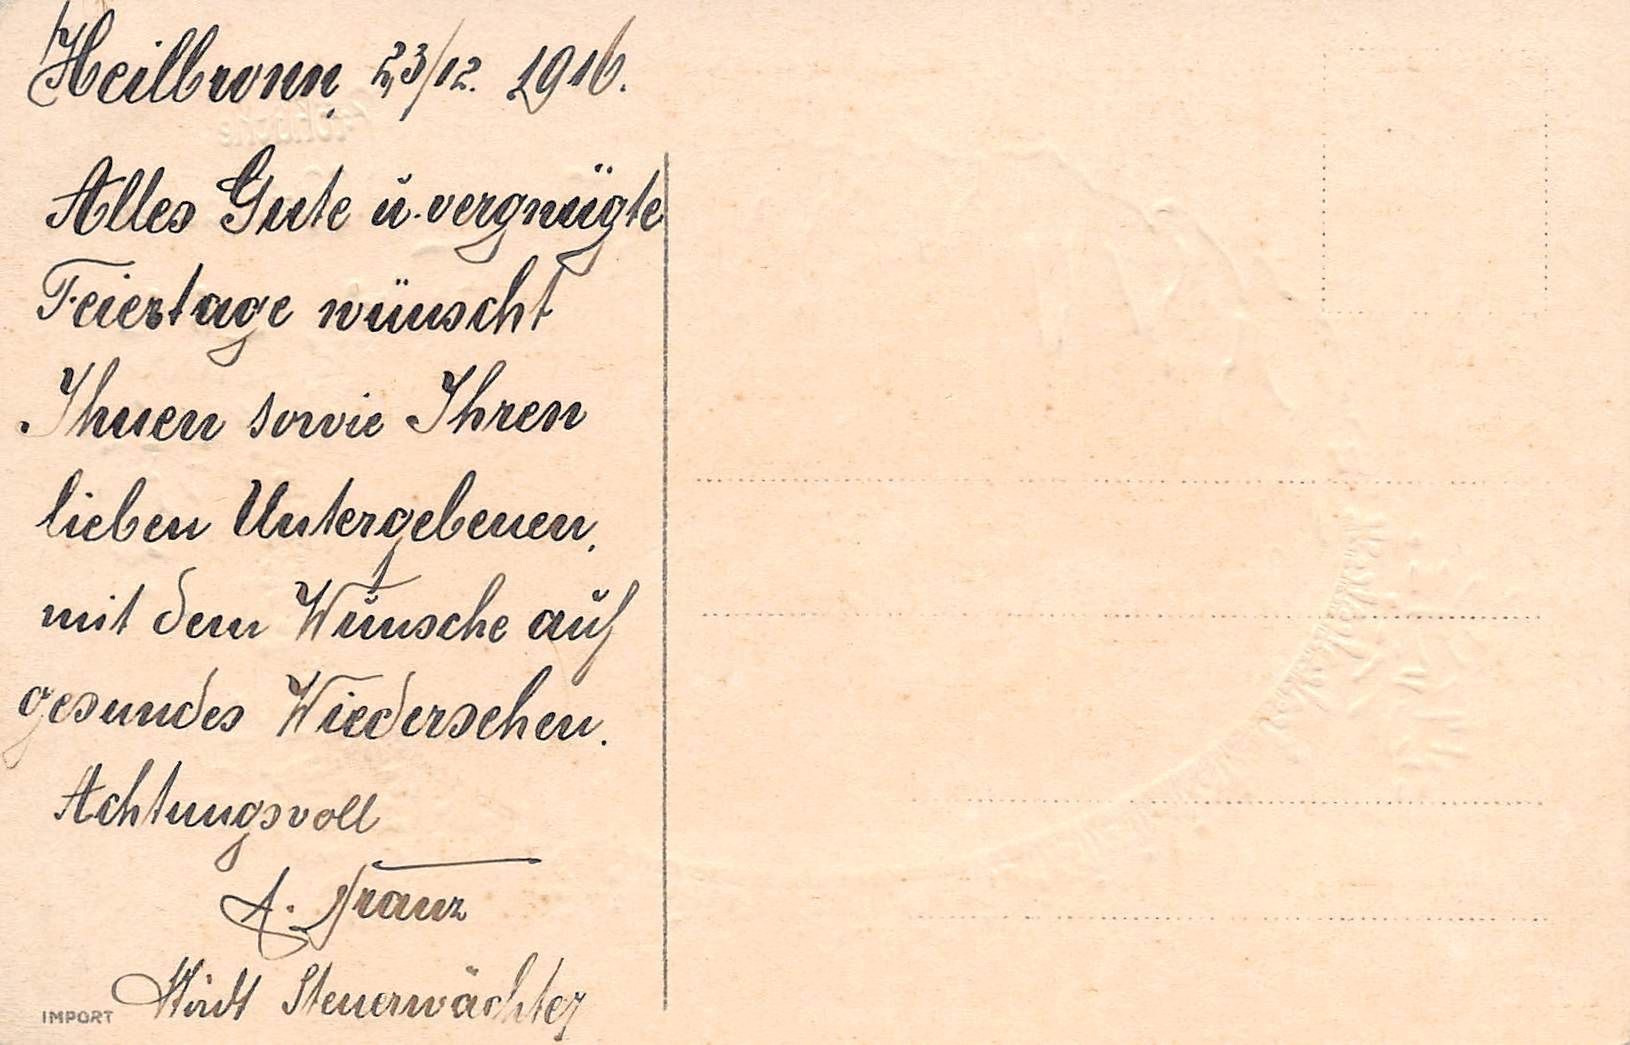 Heilbronn 23/12. 1916.
Alles Gute u. vergnügte
Feiertage wünscht
Ihnen sowie Ihren
lieben Untergebenen,
mit dem Wunsche auf
gesundes Wiedersehen.
Achtungsvoll
A. Franz
Städt Steuerwächter
IMPORT